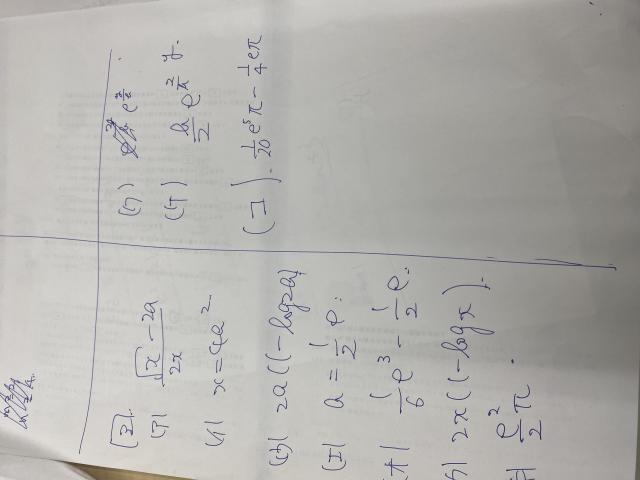 [II]
(ア) \frac{\sqrt{x} - 2a}{2x}
(イ) x = 4a^2
(ウ) 2a(1 - log2a)
(エ) a = \frac{1}{2} e.
(オ) \frac{1}{6} e^3 - \frac{1}{2} e.
(カ) 2x(1 - log x).
(キ) \frac{e^2}{2} π.
(ケ)
(コ) . \frac{1}{20} e^5 π - \frac{1}{4} eπ